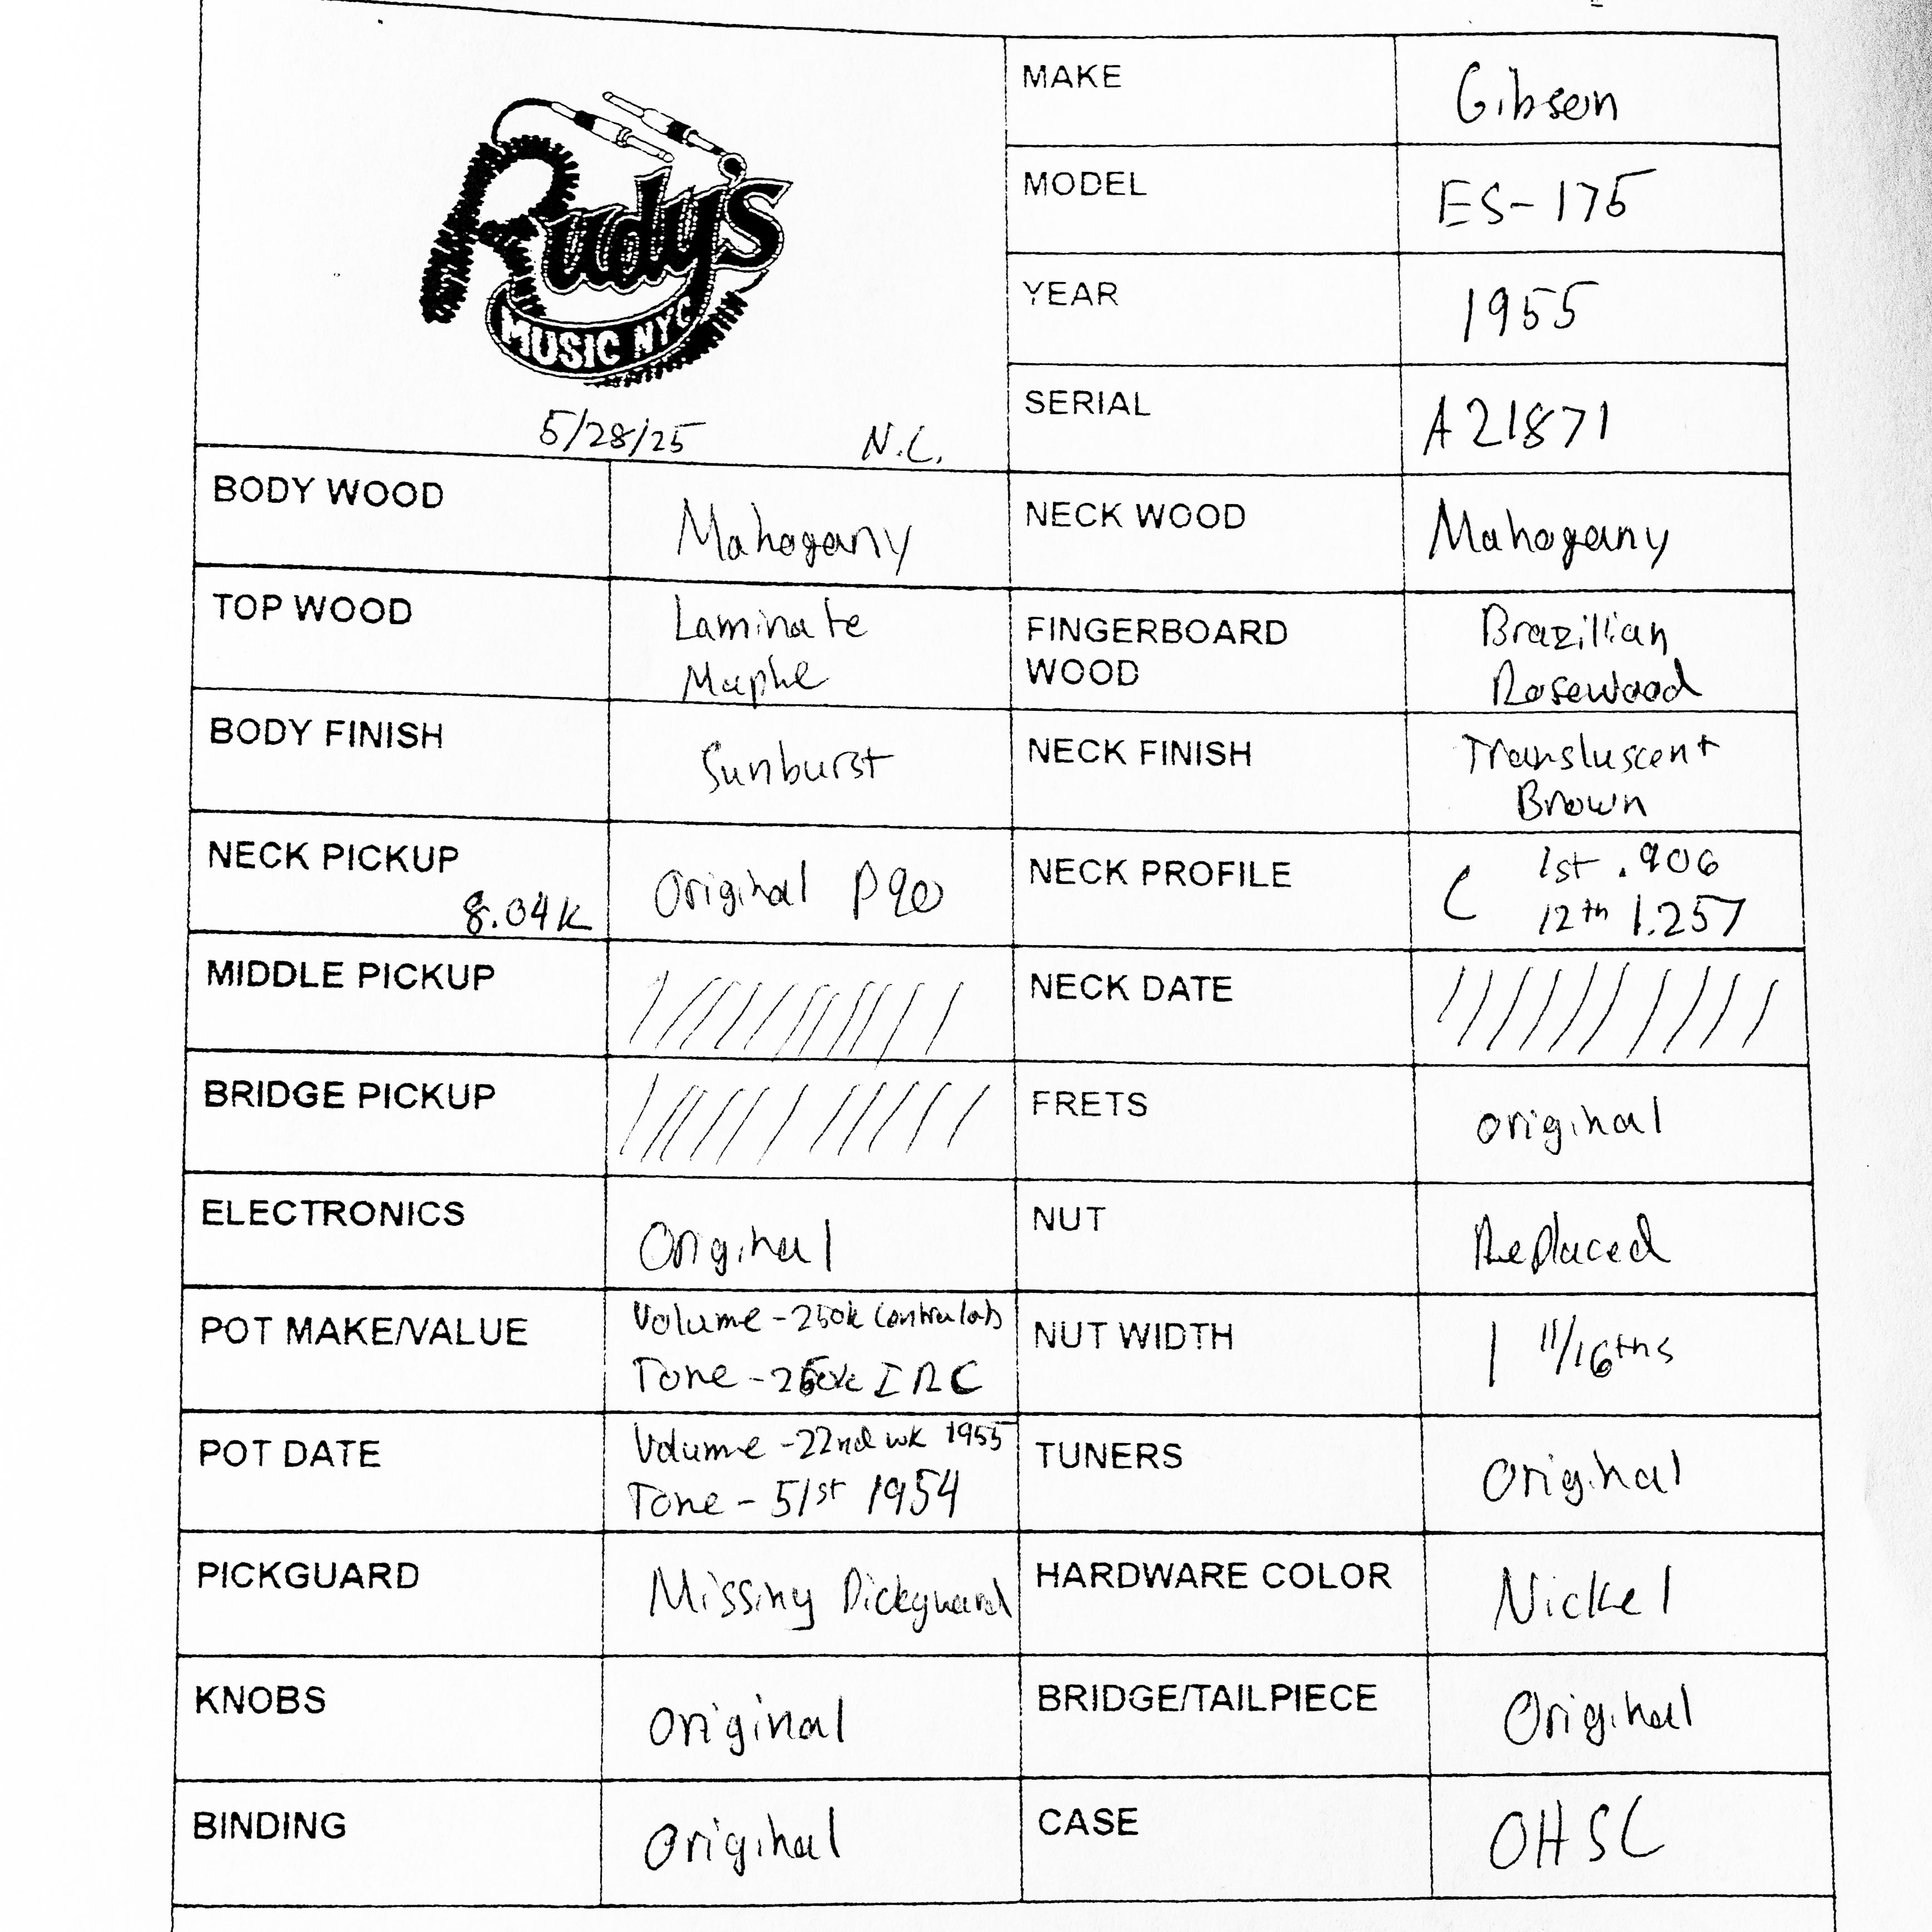 Rudy's
MUSIC NYC
5/28/25 N.C.
MAKE Gibson
MODEL ES-175
YEAR 1955
SERIAL A21871
BODY WOOD Mahogany NECK WOOD Mahogany
TOP WOOD Laminate
Maple
FINGERBOARD
WOOD
Brazilian
Rosewood
BODY FINISH Sunburst NECK FINISH Transluscent
Brown
NECK PICKUP
8.04K
Original P90
NECK PROFILE C 1st .906
12th 1.257
MIDDLE PICKUP NECK DATE
BRIDGE PICKUP FRETS original
ELECTRONICS Original NUT Replaced
POT MAKE/VALUE Volume - 250k Centralab
Tone - 250k IRC
NUT WIDTH 1 11/16ths
POT DATE Volume - 22nd wk 1955
Tone - 51st 1954
TUNERS Original
PICKGUARD Missing Pickguard HARDWARE COLOR Nickel
KNOBS original BRIDGE/TAILPIECE Original
BINDING Original CASE OHSC